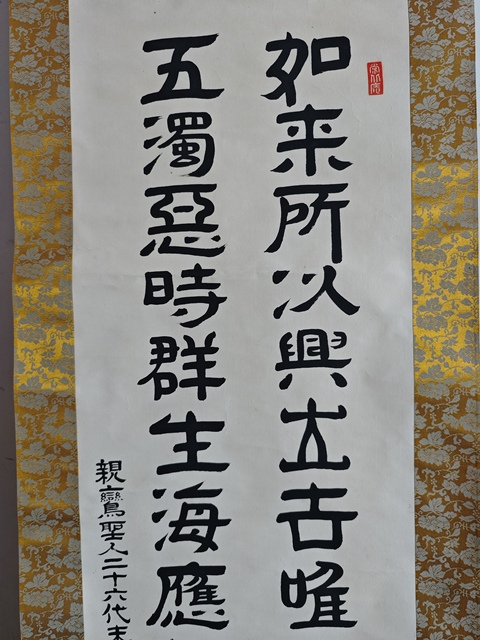 如来所以興出世唯
五濁惡時群生海應
親鸞聖人二十六代